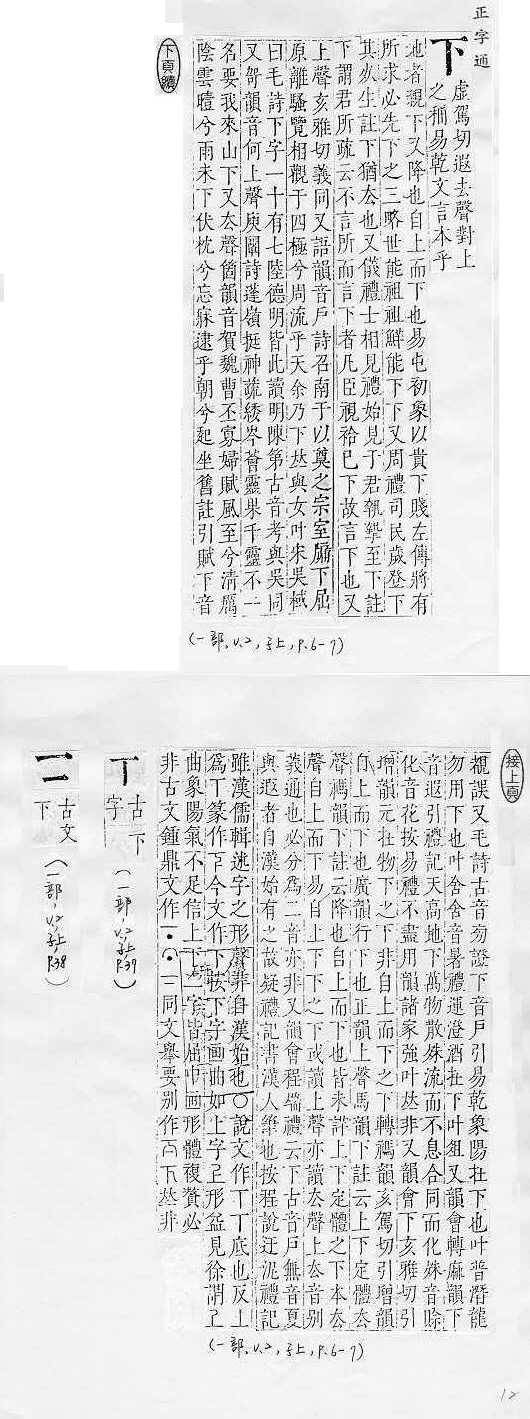 正字通
下
虛駕切遐去聲對上
之稱易乾文言本乎
地者親下又降也自上而下也易屯初象以貴下賤左傳將有
所求必先下之三略世能祖祖鮮能下下又周禮司民歲登下
其死生註下猶去也又儀禮士相見禮始見于君執摯至下註
下謂君所疏云不言所而言下者凡臣視袷已下故言下也又
上聲亥雅切義同又語韻音戶詩召南于以奠之宗室牖下屈
原離騷覽相觀于四極兮周流乎天余乃下𠀤與女叶宋吳棫
曰毛詩下字一十有七陸德明皆此讀明陳第古音考與吳同
又哿韻音何上聲庾闡詩蓬嶺挺神疏綉岑薈靈舉千靈不一
名要我來山下又去聲箇韻音賀魏曹丕寡婦賦風至兮清厲
陰雲曀兮雨未下伏枕兮忘寐逮乎朝兮起坐舊註引賦下音
下頁續
(一部,V.2,子上,P.6-7)
接上頁
䙝誤又毛詩古音旁證下音戶引易乾象陽在下也叶普潛龍
勿用下也叶舍舍音暑禮運澄酒在下叶俎又韻會轉麻韻下
音遐引禮記天高地下萬物散殊流而不息合同而化殊音賒
化音花按易禮不盡用韻諸家強叶𠀤非又韻會下亥雅切引
增韻元在物下之下非自上而下之下轉禡韻亥駕切引增韻
自上而下也廣韻行下也正韻上聲馬韻下註云上下定體去
聲禡韻下註云降也自上而下也皆未詳上下定體之下本去
聲自上而下易自上下下之下或讀上聲亦讀去聲上去音別
義通也必分爲二音亦非又韻會程端禮云下古音戶無音夏
與遐者自漢始有之故疑禮記書漢人筆也按程說迂泥禮記
雖漢儒輯述字之形聲非自漢始也〇說文作丅丁底也反上
爲丅篆作𠄟今文作下按下字画曲如上字𠄞形𥁞見徐謂𠄞
曲象陽氣不足信上下二字皆屈中画形體複贅必
非古文鍾鼎文作 一同文舉要別作 𠀤非
(一部,V.2,子上,P.6-7)
丅
古下
字
(一部,V.2,子上,P.39)
二
古文
下
(一部,V.2,子上,P.38)
12